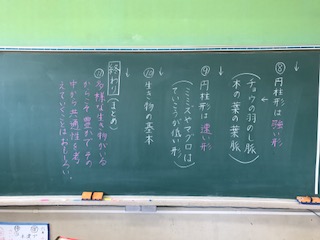 ⑧円柱形は強い形
(チョウの羽のし脈
木の葉の葉脈)
⑨円柱形は速い形
(ミミズやマグロは
ていこうが低い形)
⑩生き物の基本
終わり(まとめ)
⑪多様な生き物がいる
からこそ豊かでその
中から共通性を考
えていくことはおもしろい。